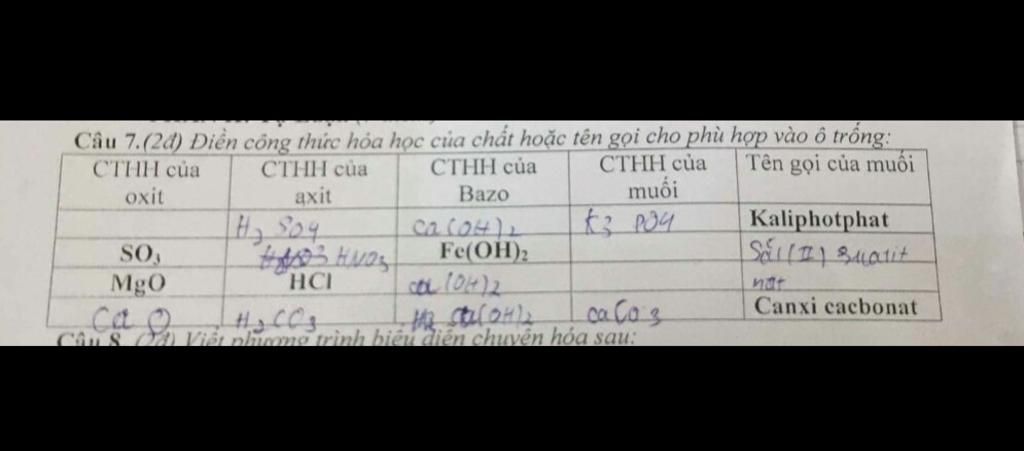 Câu 7.(2đ) Điền công thức hóa học của chất hoặc tên gọi cho phù hợp vào ô trống:
CTHH của oxit CTHH của axit CTHH của Bazo CTHH của muối Tên gọi của muối
H2 SO4 Ca(OH)2 K3 PO4 Kaliphotphat
SO3 HNO3 Fe(OH)2 Sắt (II)
MgO HCl (OH)2 nat
Ca O H2CO3 (OH)2 CaCo3 Canxi cacbonat
Câu 8. (2đ) Viết phương trình biểu diễn chuyển hóa sau: